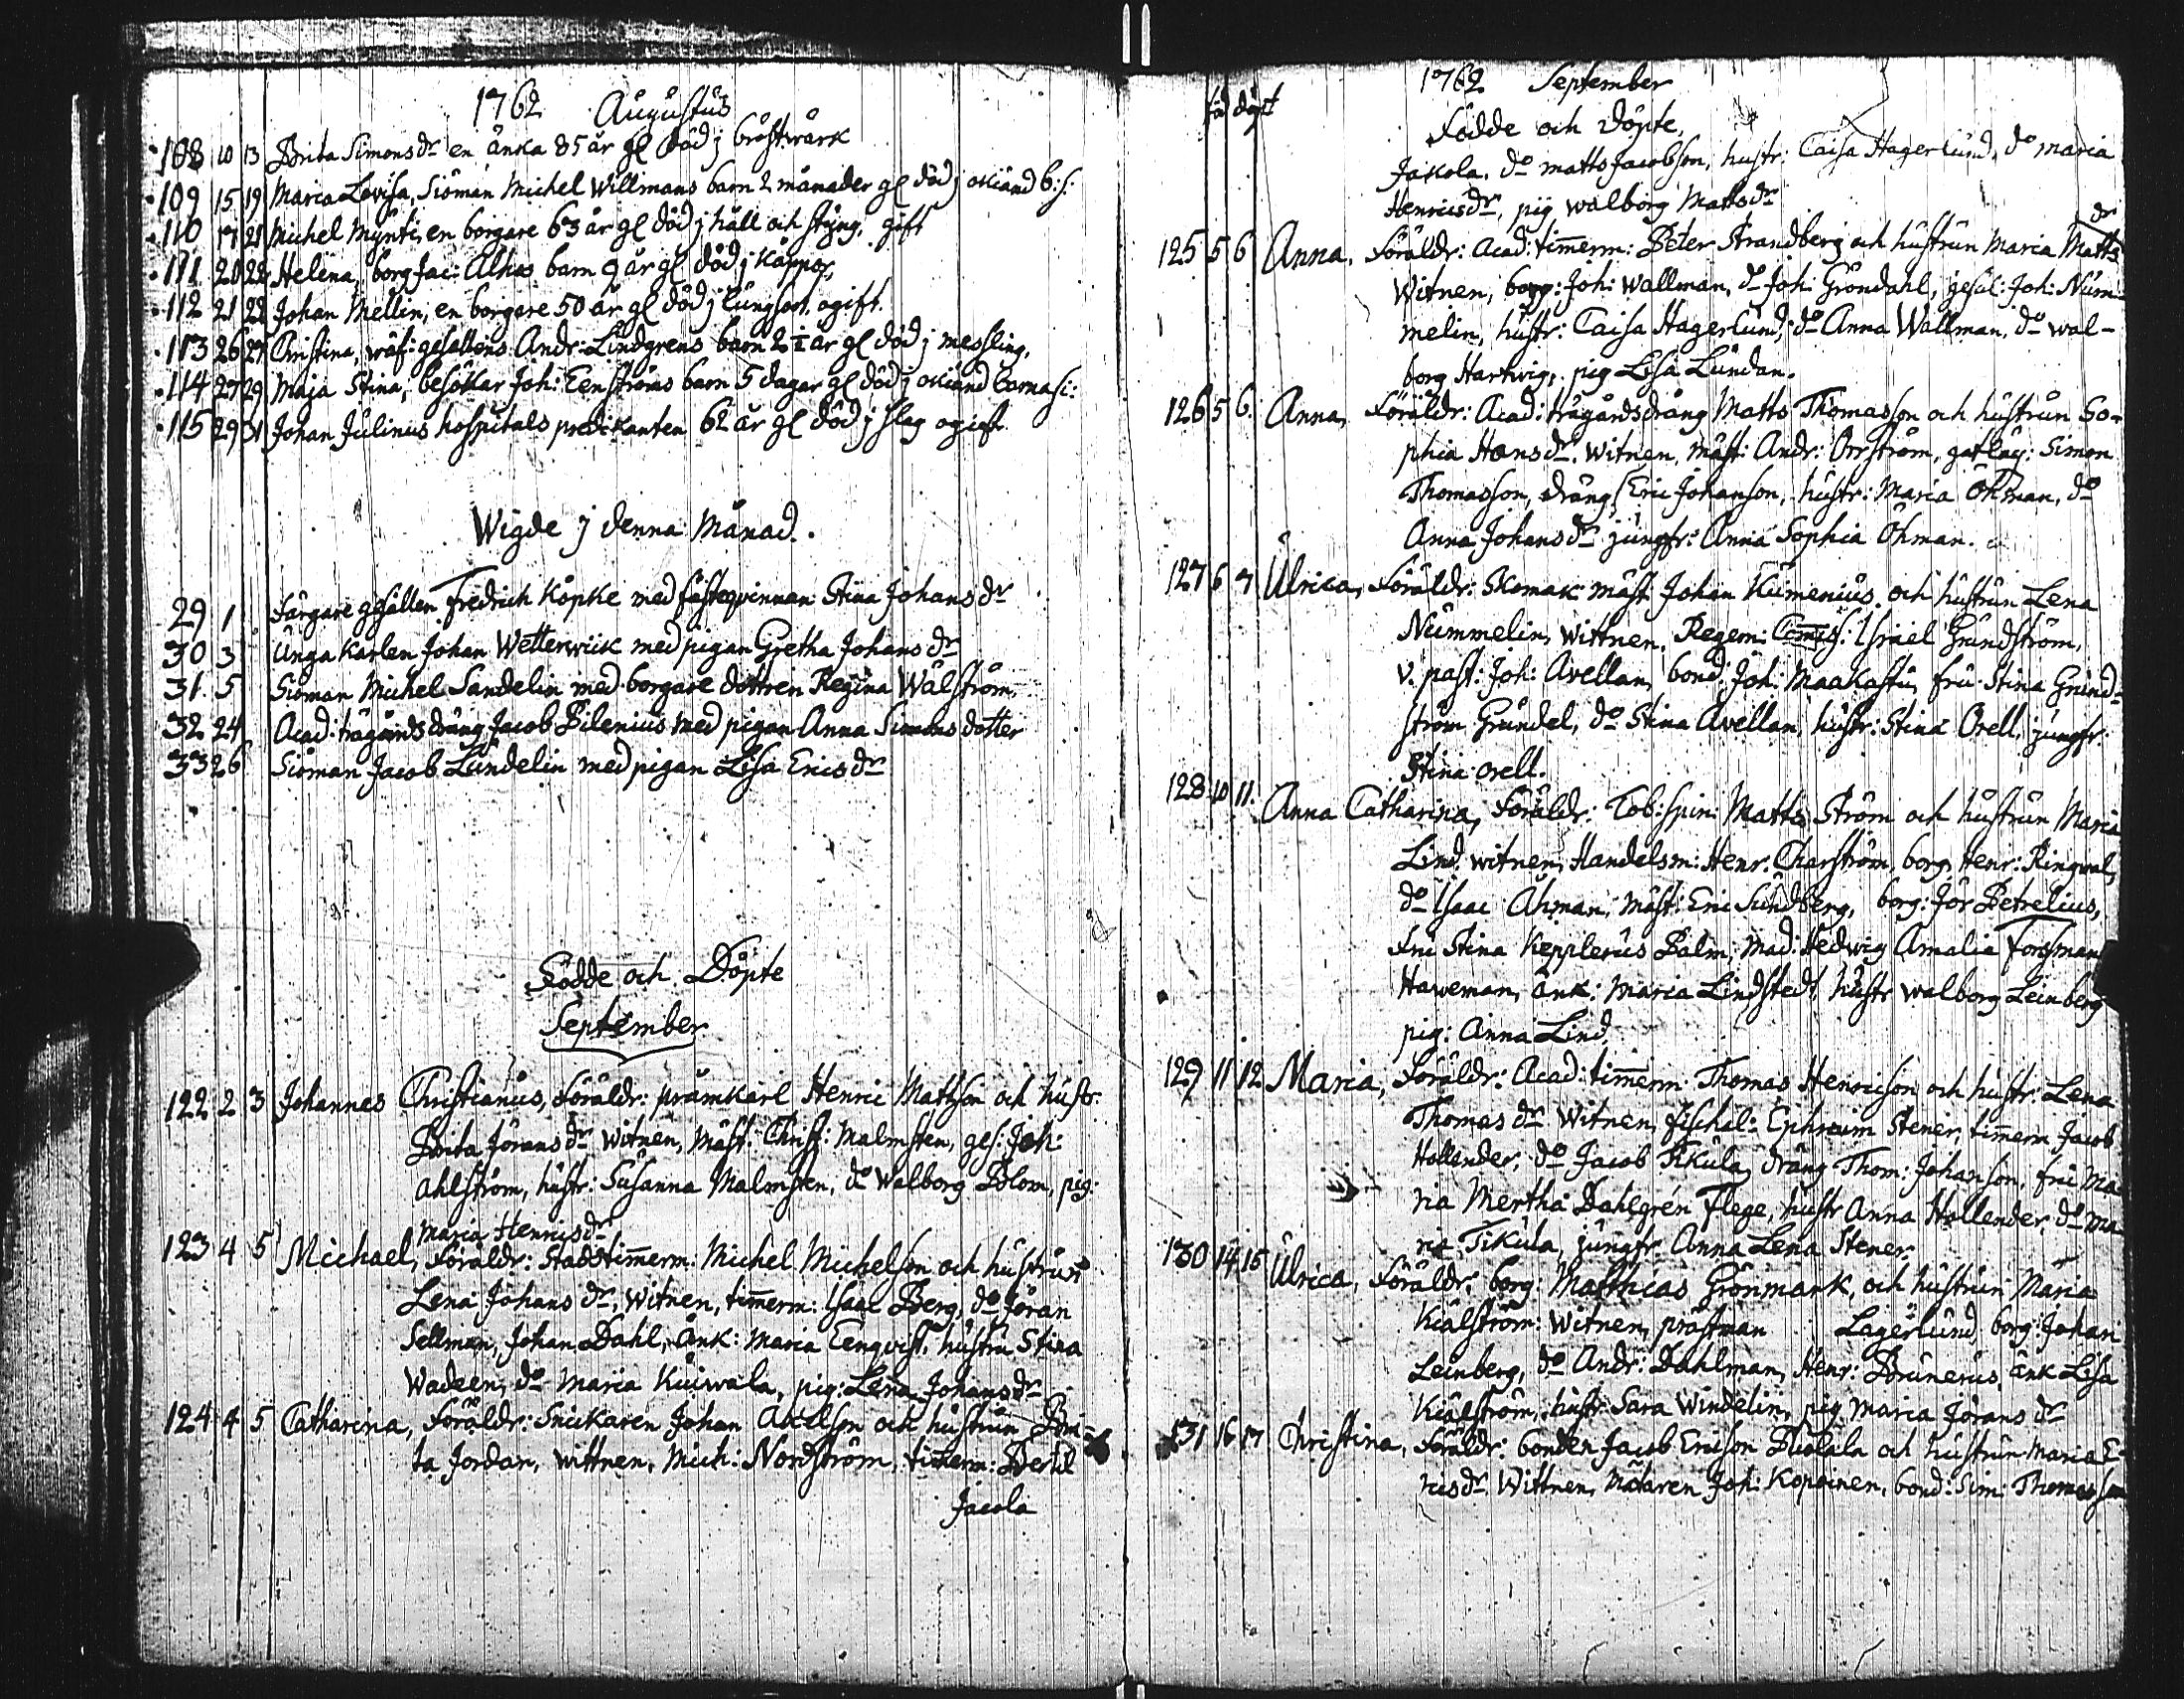 1762 Augustus
108 10 13 Brita Simonsdr en änka 85 år gl död j bröstwärk
109 15 19 Maria Lovisa, Siöman Michel Willmans barn 2 månader gl död j okiänd b:s:
110 17 21 Michel Mynti, en borgare 63 år gl död j håll och styng, gift
111 20 22 Helena, borg Jac: Alhos barn 9 år gl död j Koppor,
112 21 22 Johan Mellin, en borgare 50 år gl död j lungsot, ogift.
113 26 27 Christina, wäf: gesällens Andr: Lindgrens barn 2 1/2 år gl död j messling,
114 27 29 Maja Stina, besökar Joh: Eenströms barn 5 dagar gl död j okiänd barnasj:
115 29 31 Johan Julinus hospitals predikanten 62 år gl död j slag ogift
Wigde j denna Månad.
29 1 Färgare gesällen Fredrich Köpke med fästeqvinnan Stina Johansdr
30 3 Unga Karlen Johan Wetterwiik med pigan Gretha Johansdr
31 5 Siöman Michel Sandelin med borgare dottren Regina Walström,
32 24 Acad: trägårds dräng Jacob Pilenius med pigan Anna Simons dotter
33 26 Siöman Jacob Lundelin med pigan Lisa Ericsdr
Födde och Döpte
September
122 2 3 Johannes Christianus, Föräldr: pråmkarl Henric Mattson och hustr:
Brita Jöransdr witnen, Mäst: Christ: Malmsten, ges: Joh:
Ahlström, hustr: Susanna Malmsten, do Walborg Blom, pig:
Maria Henricsdr
123 4 5 Michael, Föräldr: Stadstimerm: Michel Michelson och hustrun
Lena Johansdr, witnen, timerm: Isaac Berg, do Jöran
Sellman, Johan Dahl, änk: Maria Eenqvist, hustru Stina
Wadeen, do Maria Kuiwala, pig: Lena Johansdr
124 4 5 Catharina, Föräldr: Snickaren Johan Axelson och hustrun Bri-
ta Jordan, wittnen, Mich: Nordström, timerm: Bertil
Jacola
1762 September
fö döpt
Födde och döpte,
Jakola, do Matts Jacobson, hustr: Caisa Hagerlund, do Maria
Henricsdr, pig Walborg Mattsdr
125 5 6 Anna, Föräldr: Acad: timerm: Peter Strandberg och hustrun Maria Matts dr
Witnen, borg: Joh: Wallman, do Joh: Gröndahl, gesäl: Joh: Num-
melin, hustr: Caisa Hagerlund, do Anna Wallman, do Wal-
borg Hartwig, pig Lisa Lundan.
126 5 6. Anna, Föräldr: Acad: trägårdsdräng Matts Thomasson och hustrun So-
phia Hansdr. Witnen, Mäst: Andr: Orrström, Simon
Thomasson, dräng Eric Johanson, hustr: Maria Öhman, do
Anna Johansdr jungfr: Anna Sophia Öhman.
127 6 7 Ulrica, Föräldr: Skomak: mäst: Johan Kumenius, och hustrun Lena
Nummelin, wittnen, Regem: Comis: Israel Grundström,
V. past: Joh: Avellan, bond: Joh: Maakastu, fru Stina Grund-
ström Grundel, do Stina Avellan, hustr: Stina Orell, jungfr:
Stina Orell.
128 10 11. Anna Catharina, Föräldr: Tob: spin: Matts Ström och hustrun Maria
Lind witnen, Handelsm: Henr: Charström, borg: Henr: Ringwal,
do Isaac Åhman, mäst: Eric Sundberg, borg: Jör Petrelius,
Fru Stina Kepplerus Palm, Mad: Hedwig Amalia Forssman
Haweman, änk: Maria Lindstedt, hustr Walborg Leinberg
pig: Anna Lind.
129 11 12 Maria, Föräldr: Acad: timerm: Thomas Henricson och hustr: Lena
Thomasdr Witnen, fischal: Ephraim Stener, timerm Jacob
Hollender, do Jacob Tikula, dräng Thom: Johanson, fru Ma-
ria Mertha Dahlgrén Flege, hustr Anna Hollender, do Ma-
ria Tikula, jungfr. Anna Lena Stener.
130 14 15 Ulrica, Föräldr: borg: Matthias Grönmark, och hustrun Maria
Kiälström: Witnen, präst Lagerlund, borg: Johan
Leinberg, do Andr: Dahlman, Henr: Brunerus, änk Lisa
Kiälström, hustr: Sara Windelin, pig Maria Jöransdr
131 16 17 Christina, Föräldr: bonden Jacob Ericson Puolala och hustrun Maria E-
ricsdr. Wittnen, Mätaren Joh: Kopoinen, bond: Sim: Thomasson